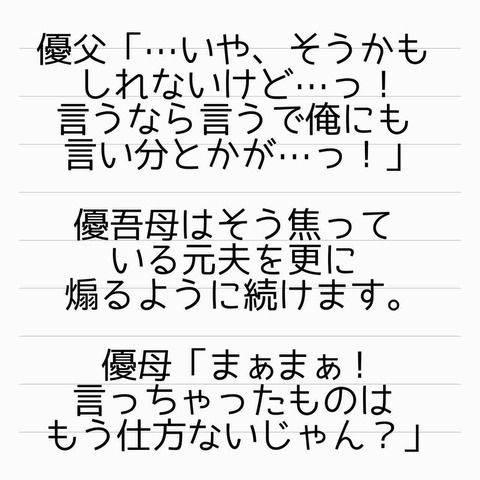 優父「…いや、そうかも
しれないけど…っ！
言うなら言うで俺にも
言い分とかが…っ！」
優吾母はそう焦って
いる元夫を更に
煽るように続けます。
優母「まぁまぁ！
言っちゃったものは
もう仕方ないじゃん？」